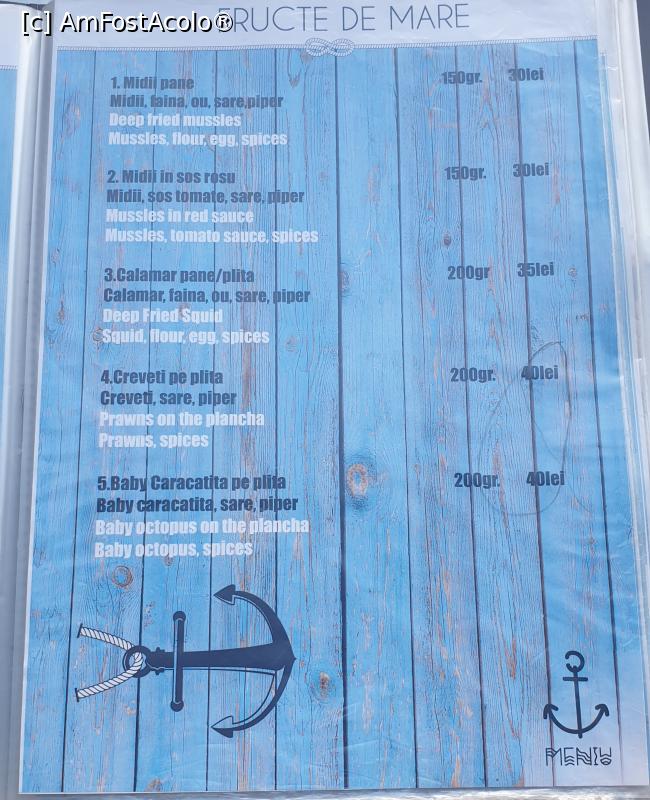 [c] AmFostAcolo®
FRUCTE DE MARE
1. Midii pane 150gr. 30lei
Midii, faina, ou, sare,piper
Deep fried mussles
Mussles, flour, egg, spices
2. Midii in sos rosu 150gr. 30lei
Midii, sos tomate, sare, piper
Mussles in red sauce
Mussles, tomato sauce, spices
3.Calamar pane/plita 200gr 35lei
Calamar, faina, ou, sare, piper
Deep Fried Squid
Squid, flour, egg, spices
4.Creveti pe plita 200gr. 40lei
Creveti, sare, piper
Prawns on the plancha
Prawns, spices
5.Baby Caracatita pe plita 200gr. 40lei
Baby caracatita, sare, piper
Baby octopus on the plancha
Baby octopus, spices
MENIU